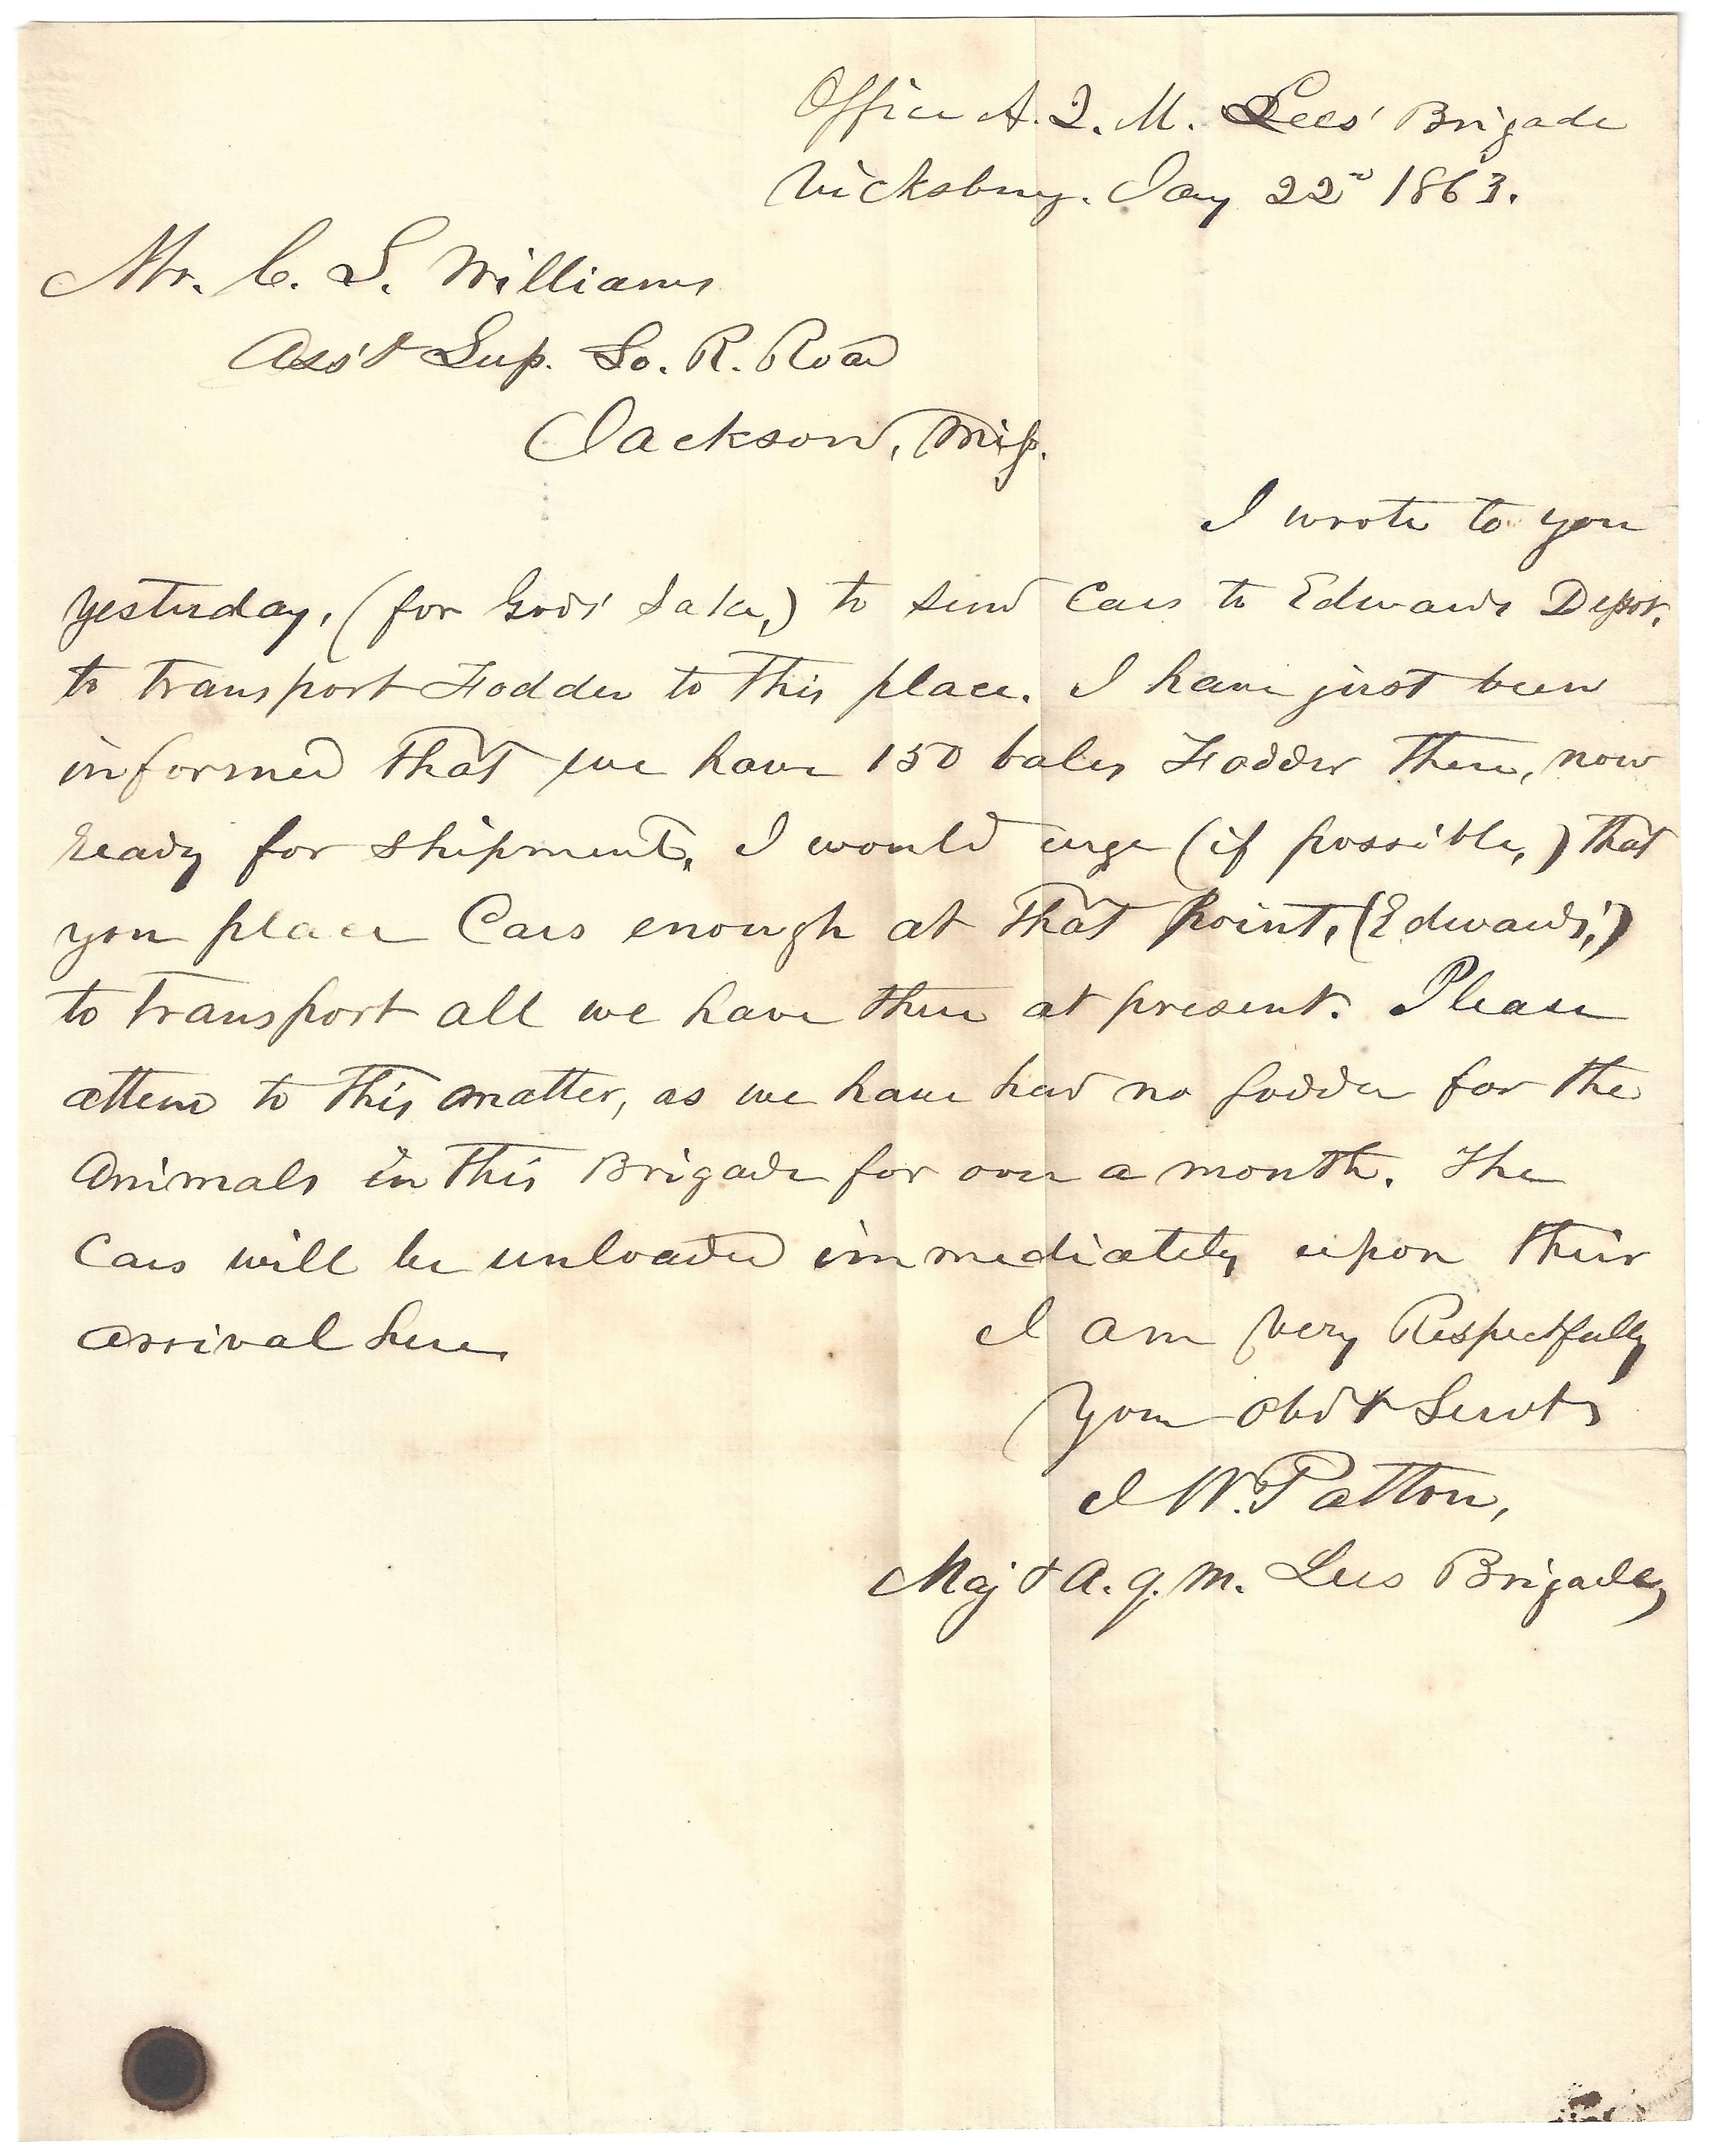 Office A. Q. M. Lees' Brigade
Vicksburg. Jany 22nd 1863.
Mr. C. S. Williams
Ass't Sup. So. R. Road
Jackson, Miss.
I wrote to you
yesterday, (for God's sake,) to send Cars to Edwards Depot.
to transport Fodder to this place. I have just been
informed that we have 150 bales Fodder there, now
ready for shipment, I would urge (if possible,) that
you place Cars enough at that point, (Edwards',)
to transport all we have there at present. Please
attend to this matter, as we have had no fodder for the
Animals in this Brigade for over a month. The
Cars will be unloaded immediately upon their
arrival here,
I am very Respectfully
Your obdt Servt,
I W. Patton,
Maj & A. Q. M. Lees Brigade,